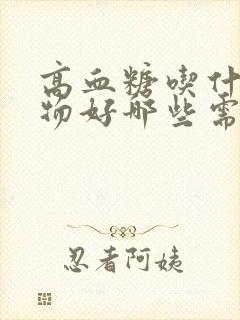 高血糖喫什
物好哪些需
忍者阿姨